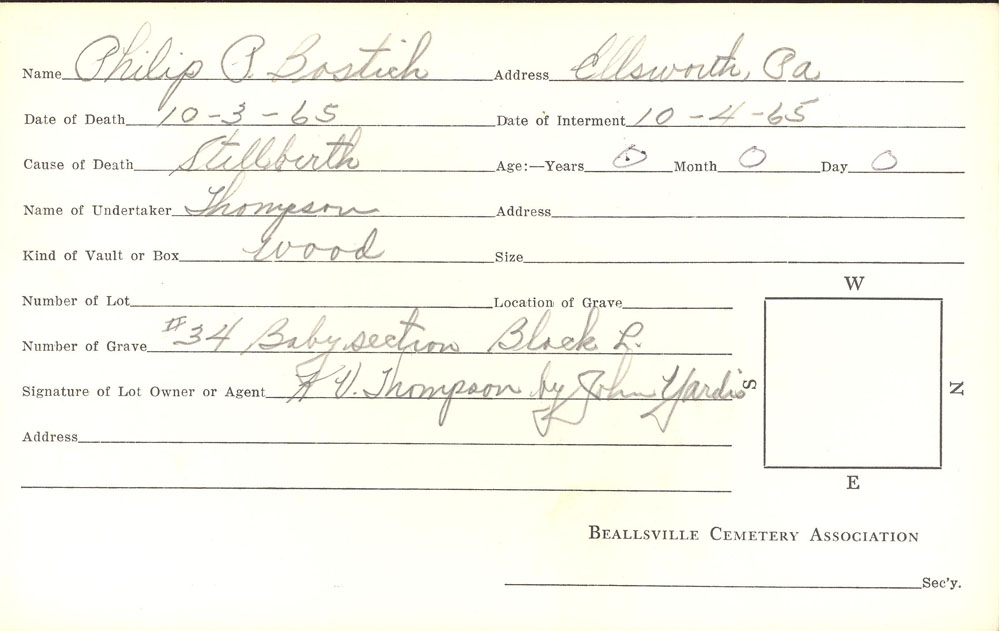 Name Philip P. Bostich Address Ellsworth, Pa
Date of Death 10-3-65 Date of Interment 10-4-65
Cause of Death Stillbirth Age:—Years 0 Month 0 Day 0
Name of Undertaker Thompson Address
Kind of Vault or Box wood Size
Number of Lot Location of Grave
W
Number of Grave #34 Baby section Block L.
Signature of Lot Owner or Agent V. Thompson by John Yardis
S N
Address
E
Beallsville Cemetery Association
Sec'y.